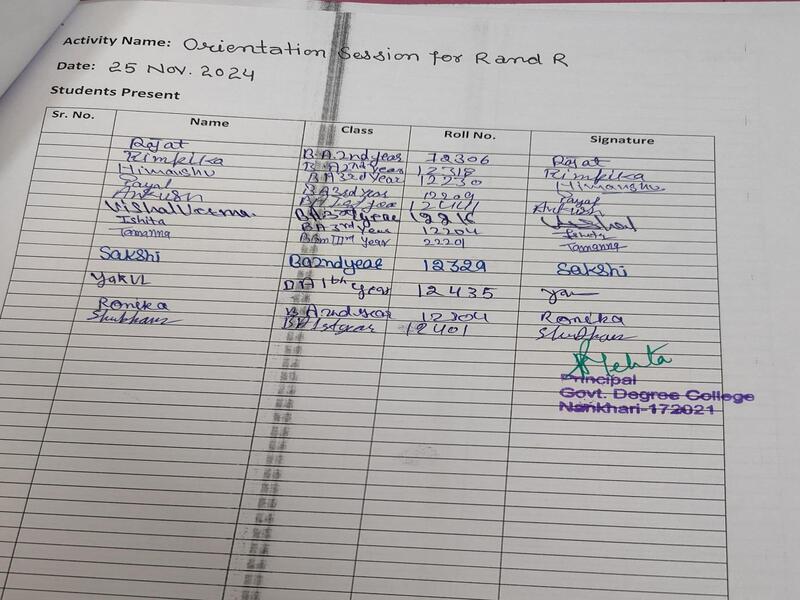 Activity Name: Orientation Session for R and R
Date: 25 Nov. 2024
Students Present
Sr. No. Name Class Roll No. Signature
Rajat BA 2nd year 12306 Rajat
Rimpika BA 2nd Year 12318 Rimpika
Himanshu BA 3rd year 12230 Himanshu
Payal BA 3rd year 12209 Payal
Ankush BA 1st year Ankush
Vishal Verma BA 3rd year 12216
Ishita BA 3rd Year 12204 Ishita
Tamanna IIIrd year 22201 Tamanna
Sakshi BA 2nd year 12329 Sakshi
BA 1th year 12435
Ronika BA 2nd year 12304 Ronika
Shubham BA 1st year 12401 Shubham
Mehta
Principal
Govt. Degree College
Nankhari-172021